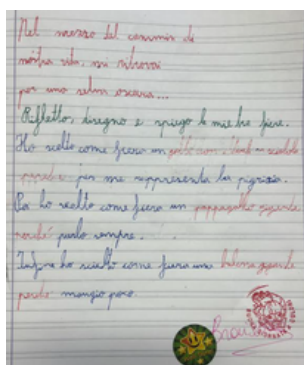 Nel mezzo del cammin di
nostra vita, mi ritrovai
per una selva oscura...
Rifletto, disegno e spiego le mie tre fiere.
Ho scelto come fiera un
perché per me rappresenta la pigrizia.
Poi ho scelto come fiera un pappagallo gigante
perché parlo sempre.
Infine ho scelto come fiera una balena gigante
perché mangio poco.